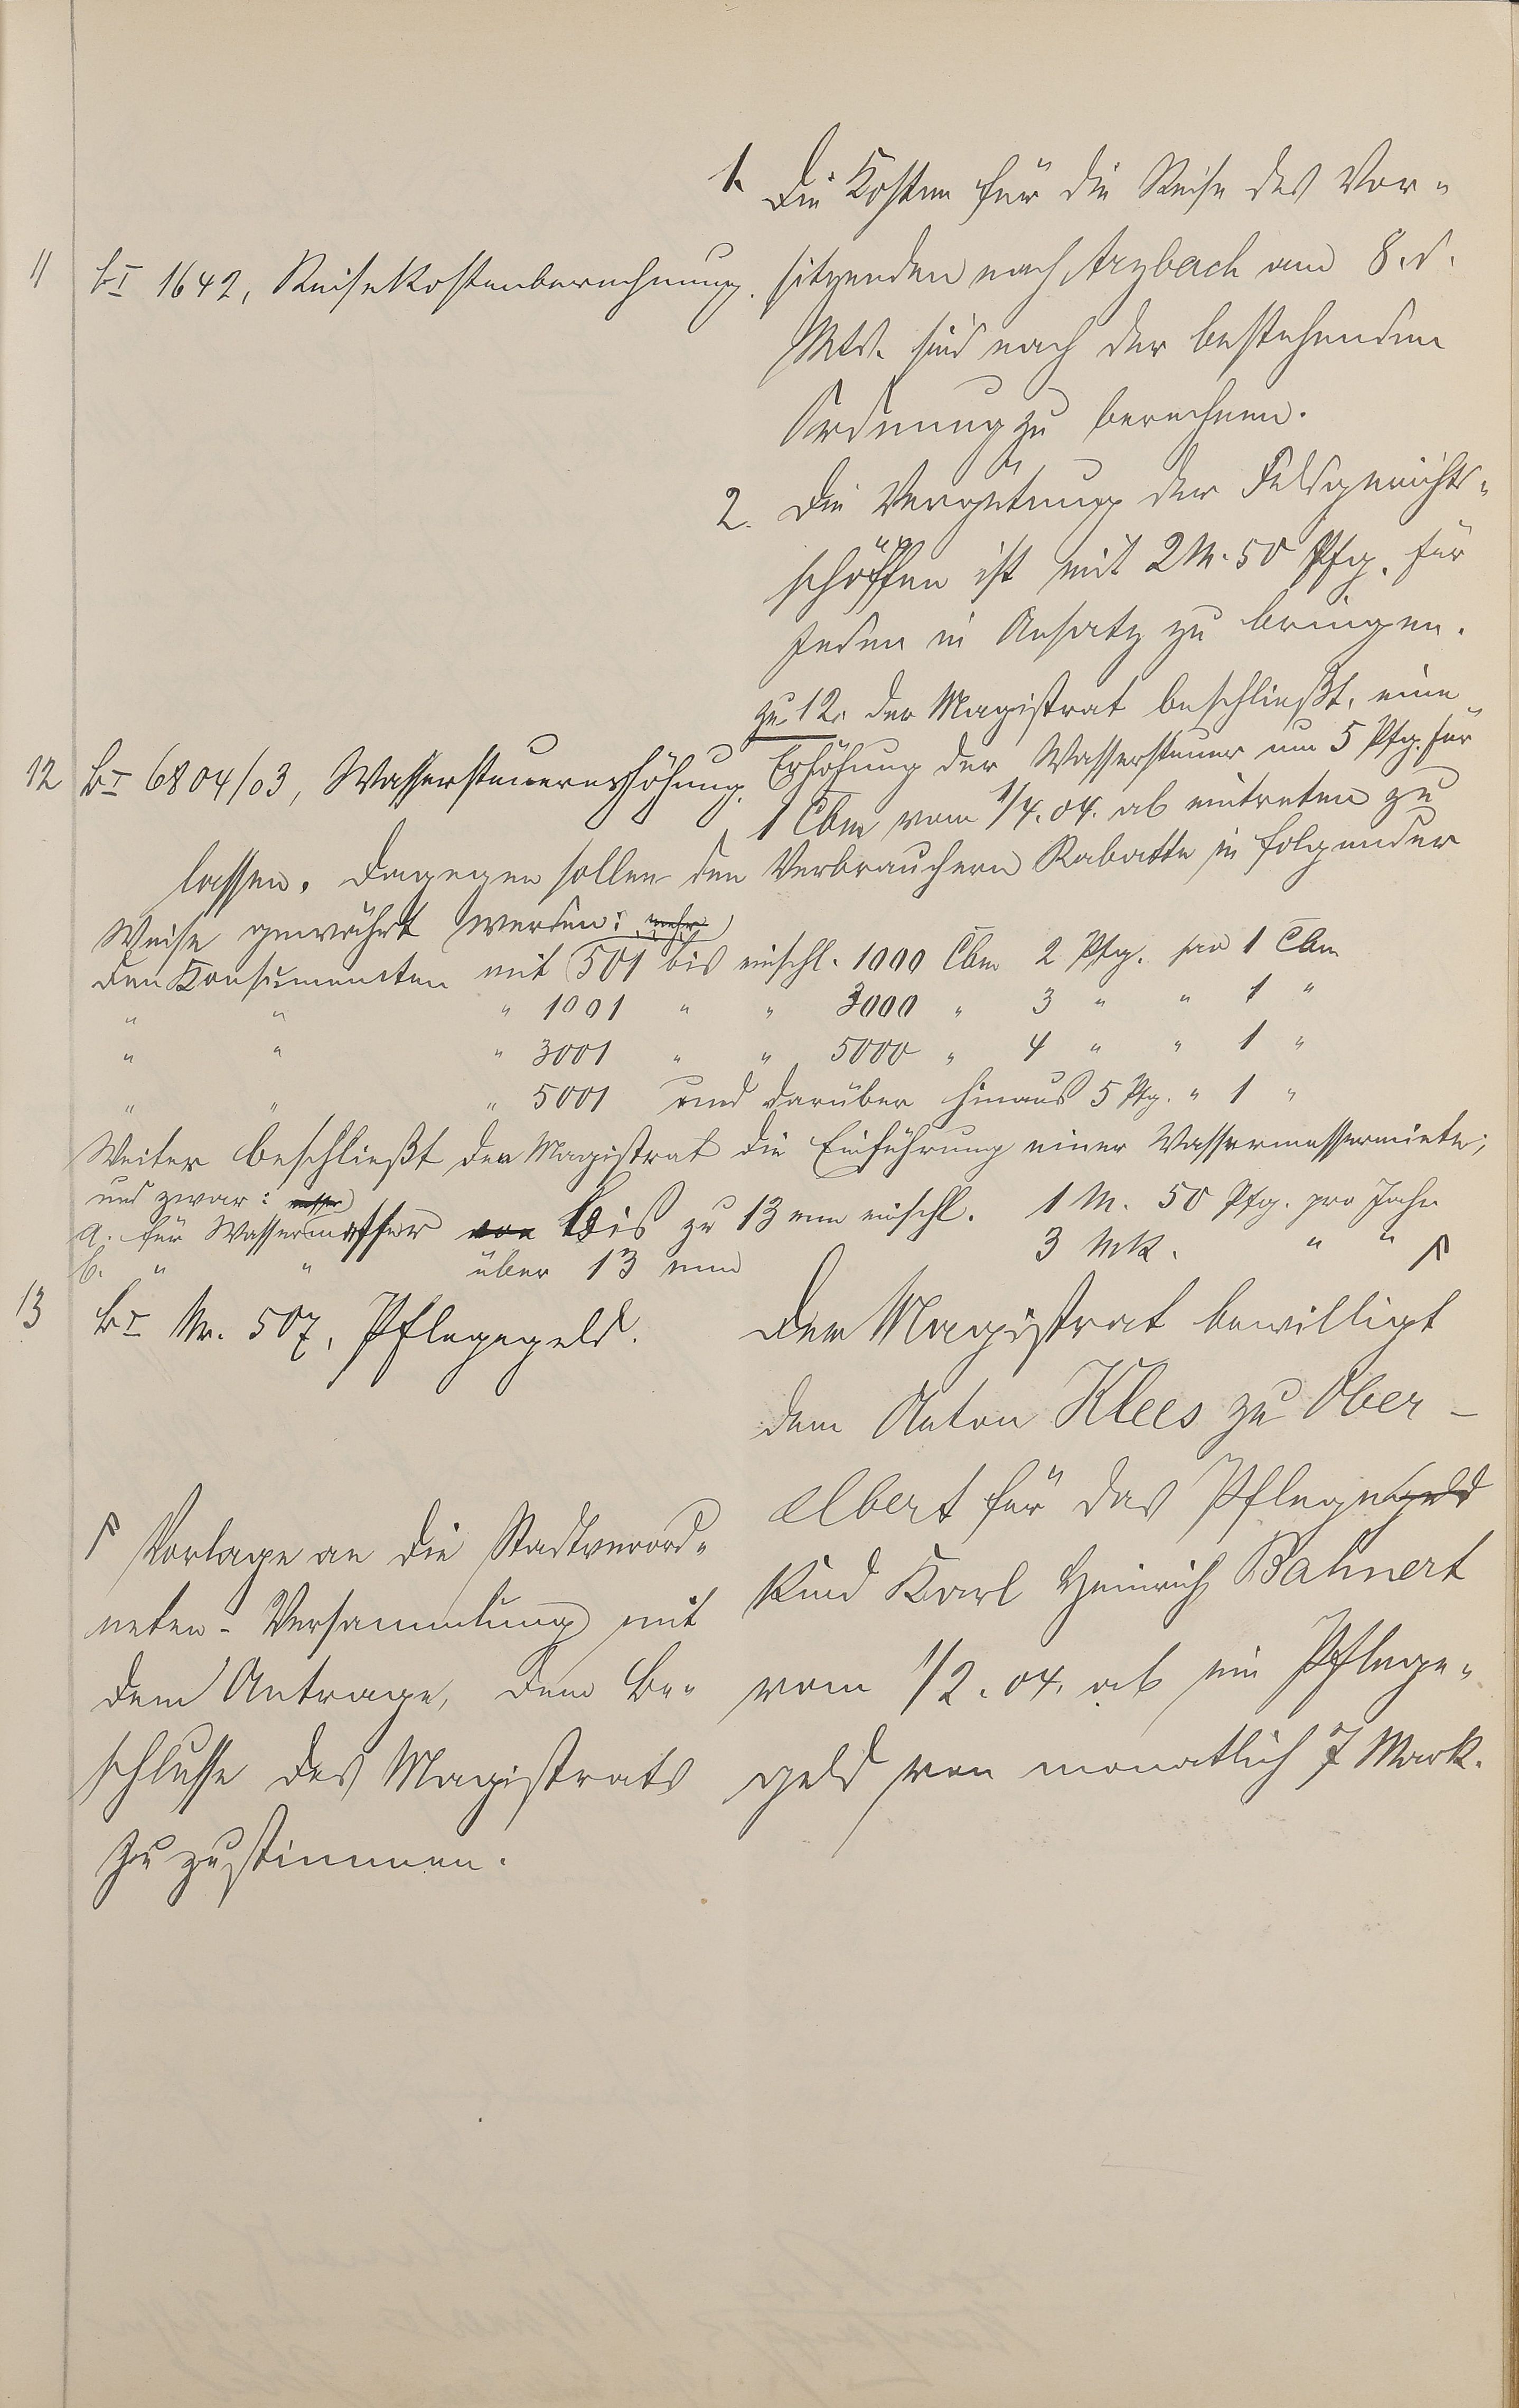 11
bI 1642, Reisekostenberechnung.
1. Die Kosten für die Reise des Vor-
sitzenden nach Arzbach am 8. d.
Mts. sind nach der bestehenden
Ordnung zu berechnen.
2. Die Vergütung der Feldgerichts-
schöffen ist mit 2 M. 50 Pfg. für
Jeden in Ansatz zu bringen.
12
bI 6804/03, Wassersteuererhöhung.
zu 12. Der Magistrat beschließt, eine
Erhöhung der Wassersteuer um 5 Pfg. für
1 Cbm vom 1/4. 04. ab eintreten zu
lassen. Dagegen sollen den Verbrauchern Rabatte in folgender
Weise gewährt werden: mehr
den Konsumenten mit 501 bis einschl. 1000 Cbm 2 Pfg. pro 1 Cbm
" " " 1001 " " 3000 " 3 " " 1 "
" " " 3001 " " 5000 " 4 " " 1 "
" " " 5001 und darüber hinaus 5 Pfg. " 1 "
Weiter beschließt der Magistrat die Einführung einer Wassermessermiete;
und zwar: messer
a. für Wassermesser von bis zu 13 mm einschl. 1 M. 50 Pfg. pro Jahr
b. " " über 13 mm 3 Mk. " "
13
bI Nr. 507, Pflegegeld.
Der Magistrat bewilligt
dem Anton Klees zu Ober-
elbert für das Pflegegeld
kind Karl Heinrich Bahnert
vom 1/2. 04. ab ein Pflege-
geld von monatlich 7 Mark.
Vorlage an die Stadtverord-
neten-Versammlung mit
dem Antrage, dem Be-
schlusse des Magistrats
zu zustimmen.